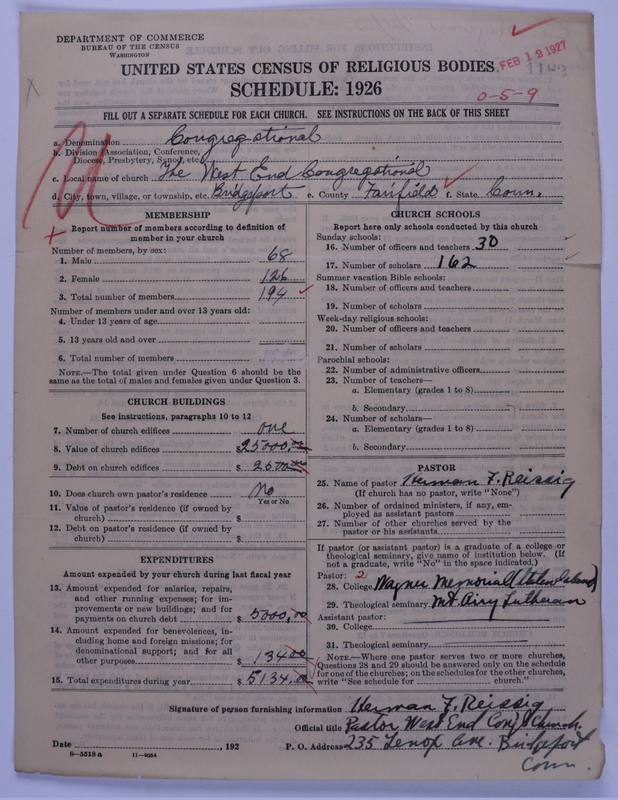 DEPARTMENT OF COMMERCE
BUREAU OF THE CENSUS
WASHINGTON
FEB 12 1927
UNITED STATES CENSUS OF RELIGIOUS BODIES
SCHEDULE: 1926
0-5-9
FILL OUT A SEPARATE SCHEDULE FOR EACH CHURCH. SEE INSTRUCTIONS ON THE BACK OF THIS SHEET
a. Denomination Congregational
b. Division (Association, Conference, Diocese, Presbytery, Synod, etc.)
c. Local name of church The West End Congregational
d. City, town, village, or township, etc. Bridgeport e. County Fairfield f. State Conn.
MEMBERSHIP
Report number of members according to definition of
member in your church
Number of members, by sex:
1. Male 68
2. Female 126
3. Total number of members 194
Number of members under and over 13 years old:
4. Under 13 years of age
5. 13 years old and over
6. Total number of members
NOTE.—The total given under Question 6 should be
same as the total of males and females given under Question 3.
CHURCH BUILDINGS
See instructions, paragraphs 10 to 12
7. Number of church edifices one
8. Value of church edifices $25000.00
9. Debt on church edifices $2500.00
10. Does church own pastor's residence No
Yes or No
11. Value of pastor's residence (if owned by
church) $
12. Debt on pastor's residence (if owned by
church) $
EXPENDITURES
Amount expended by your church during last fiscal year
13. Amount expended for salaries, repairs,
and other running expenses; for im-
provements or new buildings; and for
payments on church debt $5000.00
14. Amount expended for benevolences, in-
cluding home and foreign missions; for
denominational support; and for all
other purposes $134.00
15. Total expenditures during year $5134.00
CHURCH SCHOOLS
Report here only schools conducted by this church
Sunday schools:
16. Number of officers and teachers 30
17. Number of scholars 162
Summer vacation Bible schools:
18. Number of officers and teachers
19. Number of scholars
Week-day religious schools:
20. Number of officers and teachers
21. Number of scholars
Parochial schools:
22. Number of administrative officers
23. Number of teachers—
a. Elementary (grades 1 to 8)
b. Secondary
24. Number of scholars—
a. Elementary (grades 1 to 8)
b. Secondary
PASTOR
25. Name of pastor Herman F. Reissig
(If church has no pastor, write "None")
26. Number of ordained ministers, if any, em-
ployed as assistant pastors
27. Number of other churches served by the
pastor or his assistants
If pastor (or assistant pastor) is a graduate of a college or
theological seminary, give name of institution below. (If
not a graduate, write "No" in the space indicated.)
Pastor: 2
28. College Wagner Memorial (Staten Island)
29. Theological seminary Mt. Airy Lutheran
Assistant pastor:
30. College
31. Theological seminary
NOTE.—Where one pastor serves two or more churches,
Questions 28 and 29 should be answered only on the schedule
for one of the churches; on the schedules for the other churches,
write "See schedule for church."
Signature of person furnishing information Herman F. Reissig
Official title Pastor West End Cong'l Church.
Date , 192 P. O. Address 235 Lenox Ave. Bridgeport
Conn.
8—5518 a 11—9264